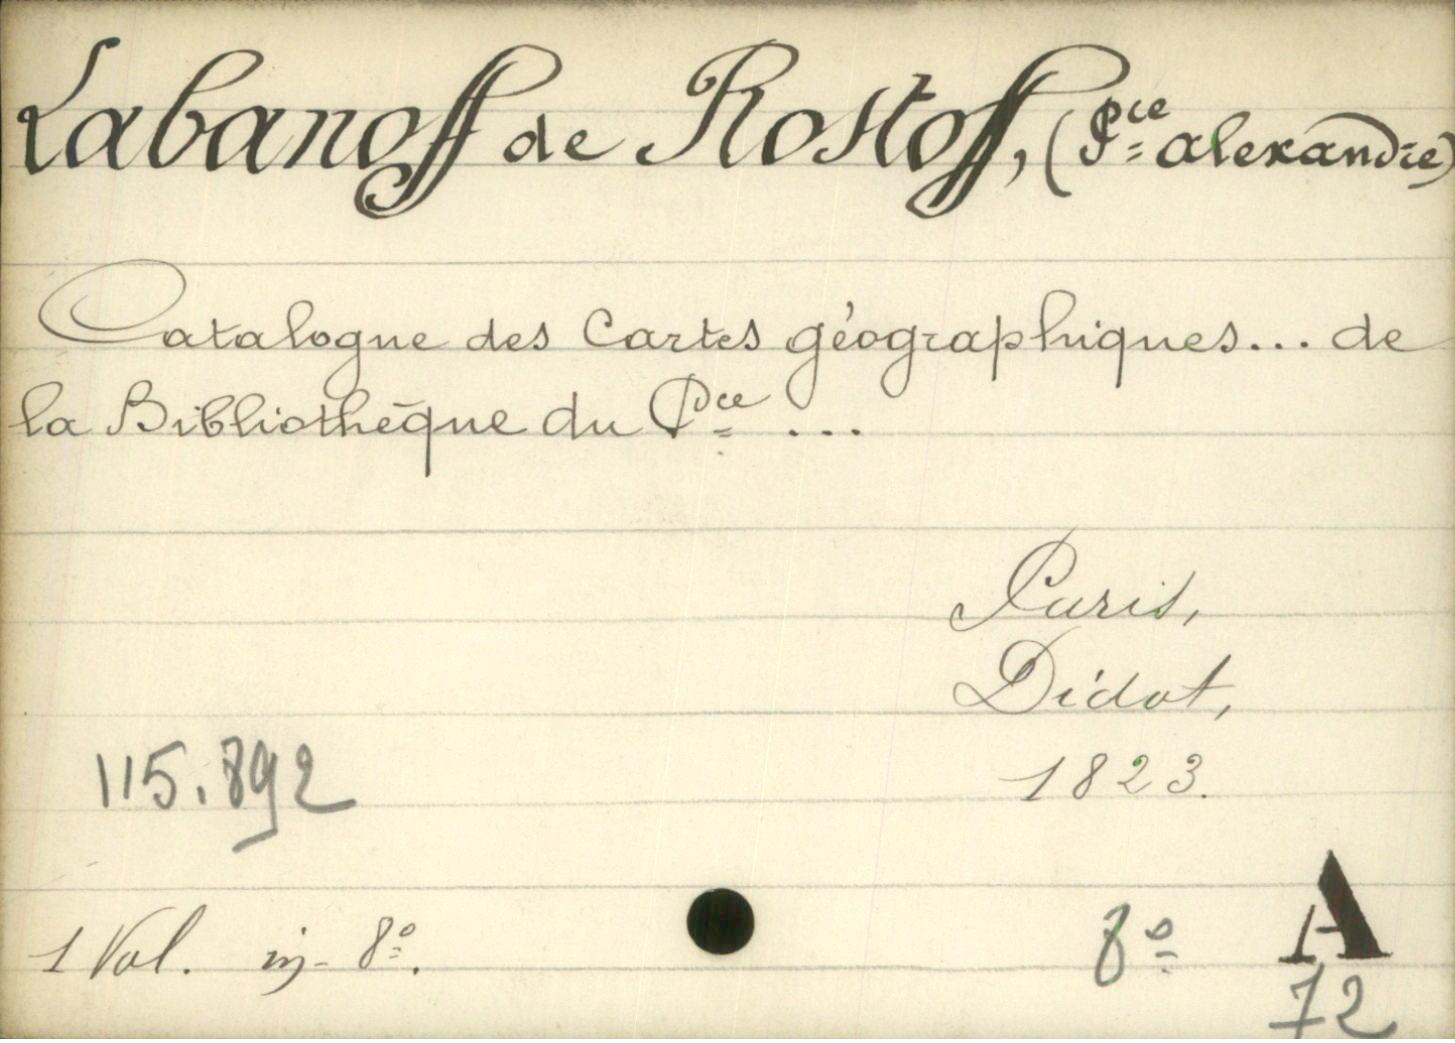 Labanoff de Rostoff, (Pce alexandre)
Catalogue des Cartes géographiques... de
la Bibliothèque du Pce ...
Paris,
Didot,
1823.
115.892
1 Vol. in-8º.
8º A
72